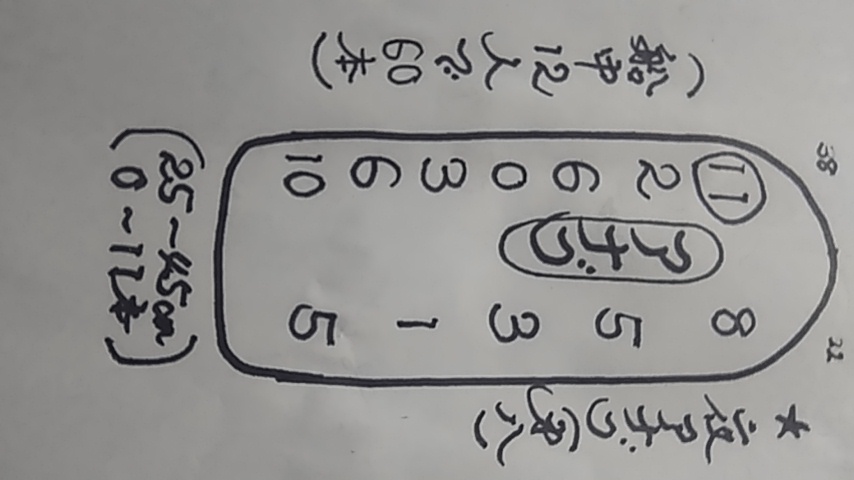 38 22
(船中12人で60本)
11
2
6
0
3
6
10
アナゴ
8
5
3
1
5
アナゴ
(25~45cm
0~11本)